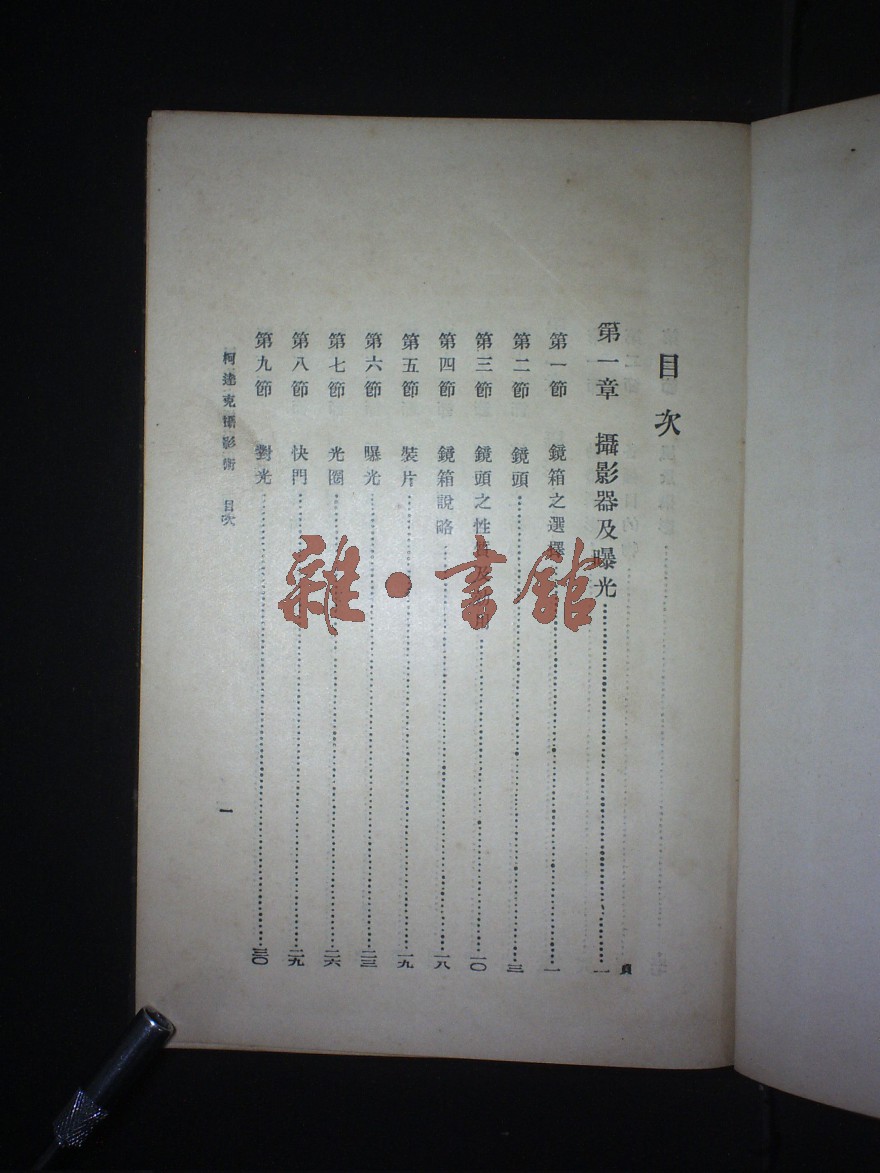 目次
頁
第一章 攝影器及曝光……一
第一節 鏡箱之選擇……一
第二節 鏡頭……三
第三節 鏡頭之性質及……一〇
第四節 鏡箱說略……一八
第五節 裝片……一九
第六節 曝光……二三
第七節 光圈……二六
第八節 快門……二九
第九節 對光……三〇
柯達克攝影術 目次
一
雜·書館